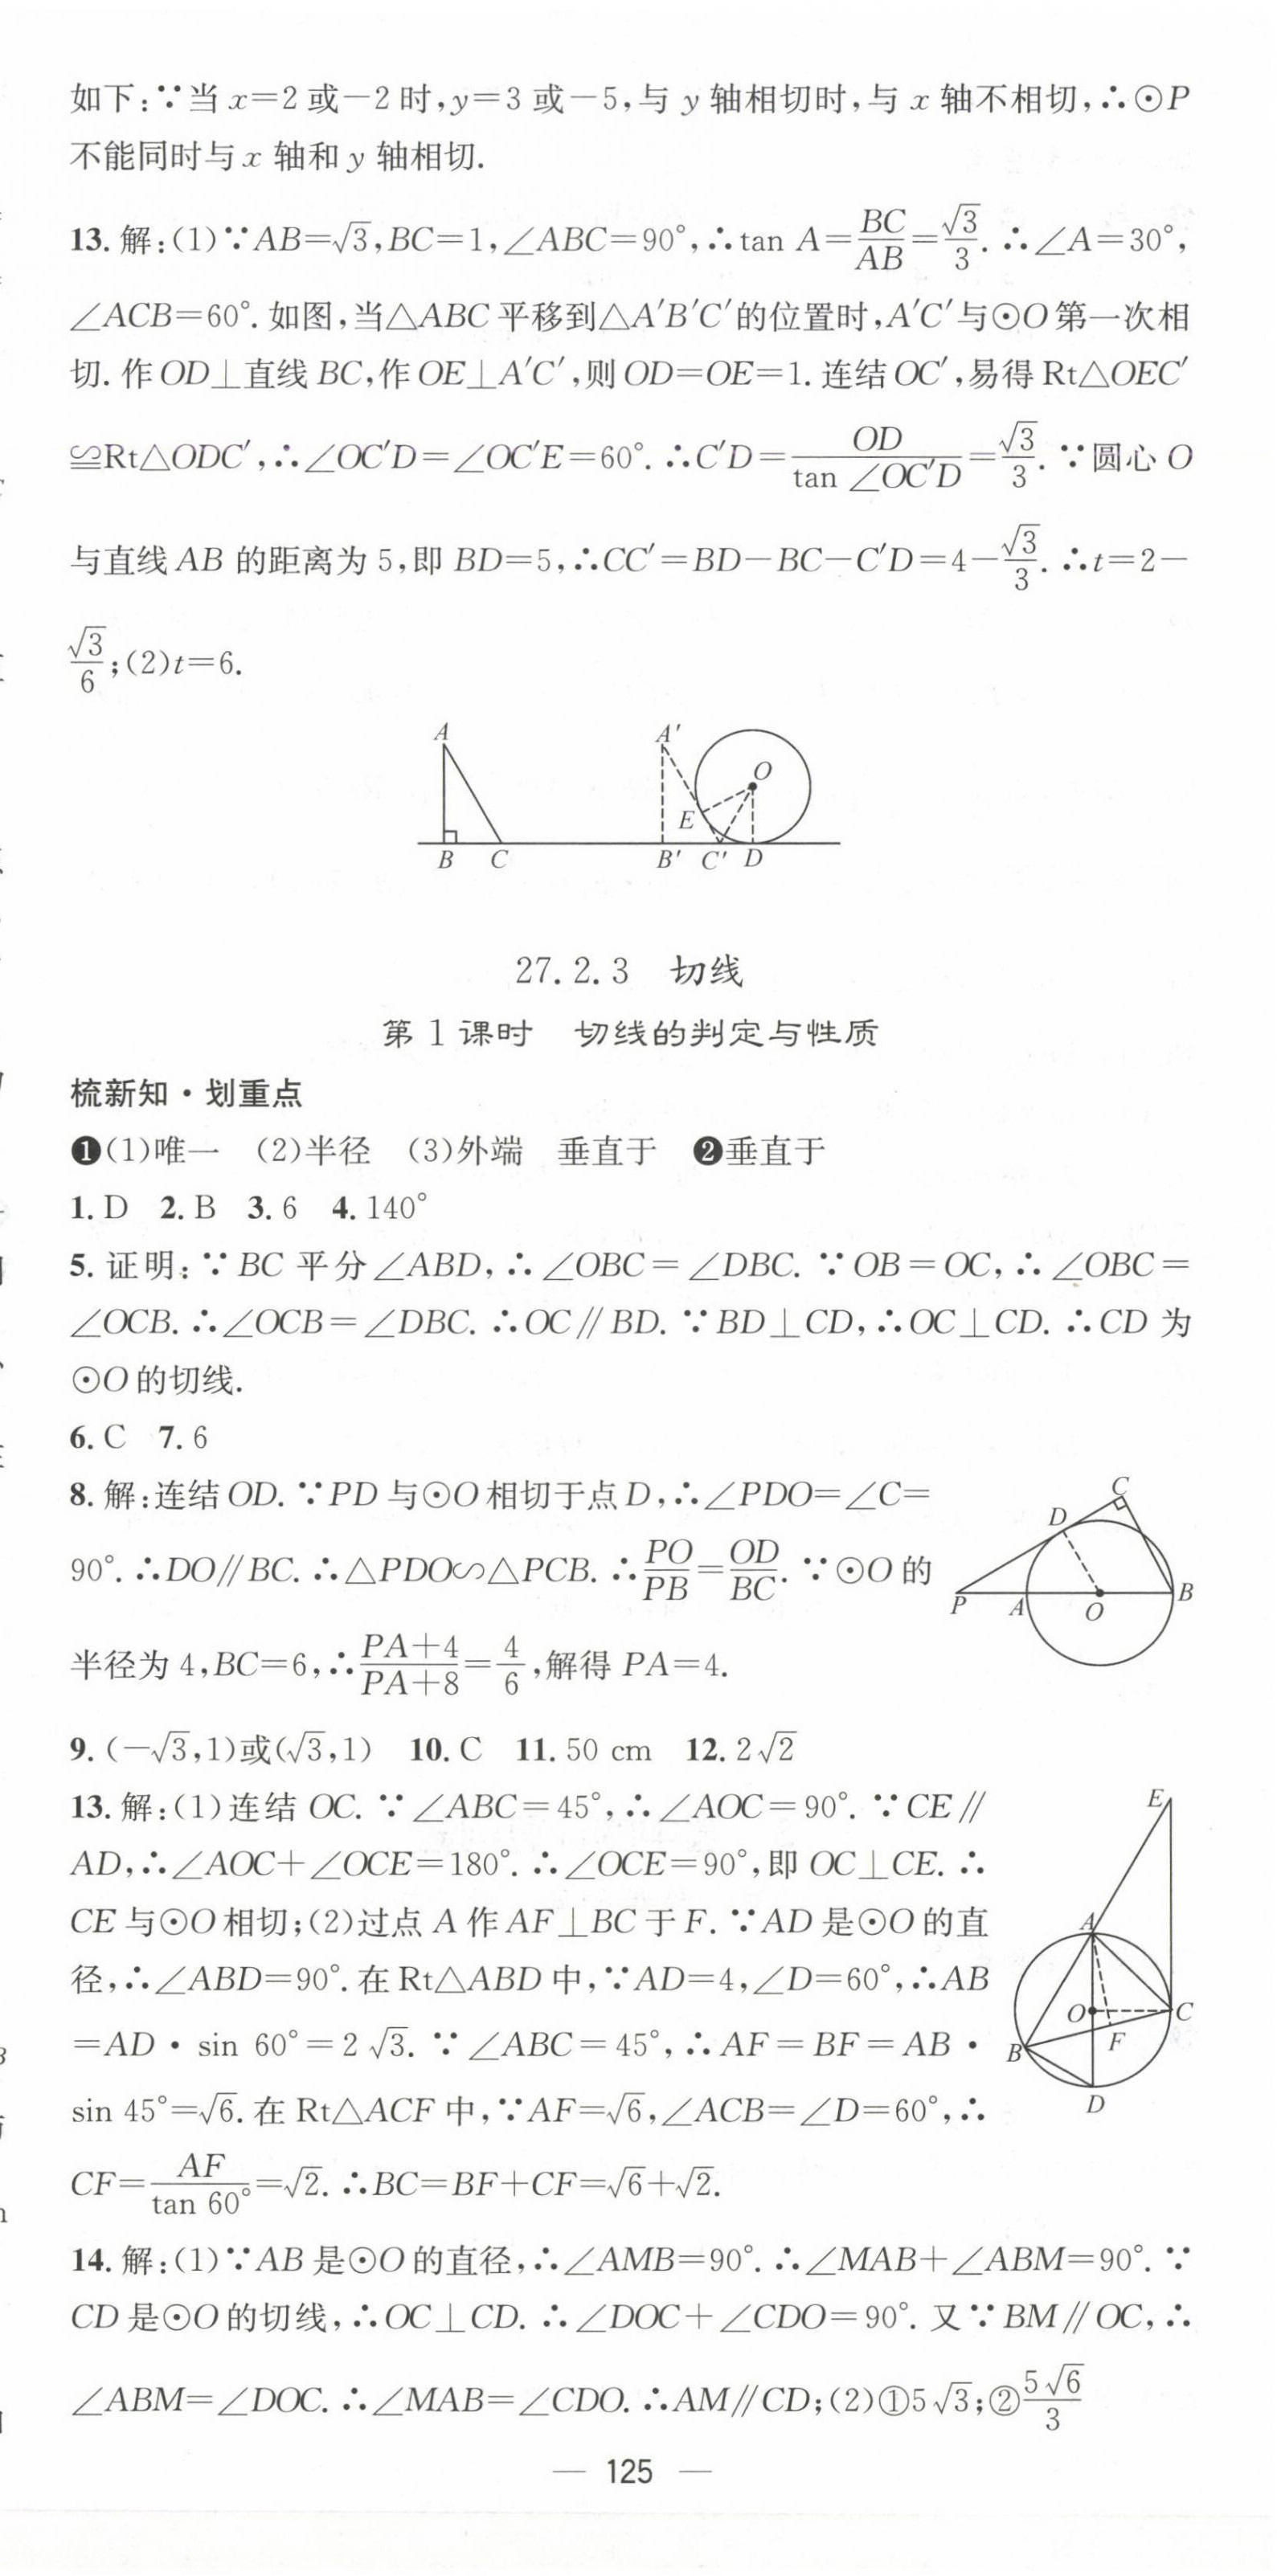 如下:∵当x=2或-2时,y=3或-5,与y轴相切时,与x轴不相切,∴⊙P
不能同时与x轴和y轴相切.
13.解:(1)∵AB=√3,BC=1,∠ABC=90°,∴tan A=BC/AB=√3/3.∴∠A=30°,
∠ACB=60°.如图,当△ABC平移到△A′B′C′的位置时,A′C′与⊙O第一次相
切.作OD⊥直线BC,作OE⊥A′C′,则OD=OE=1.连结OC′,易得Rt△OEC′
≌Rt△ODC′,∴∠OC′D=∠OC′E=60°.∴C′D=OD/tan ∠OC′D=√3/3.∵圆心O
与直线AB的距离为5,即BD=5,∴CC′=BD-BC-C′D=4-√3/3.∴t=2-
√3/6;(2)t=6.
A A′ O E
B C B′ C′ D
27.2.3 切线
第1课时 切线的判定与性质
梳新知·划重点
❶(1)唯一 (2)半径 (3)外端 垂直于 ❷垂直于
1.D 2.B 3.6 4.140°
5.证明:∵BC平分∠ABD,∴∠OBC=∠DBC.∵OB=OC,∴∠OBC=
∠OCB.∴∠OCB=∠DBC.∴OC∥BD.∵BD⊥CD,∴OC⊥CD.∴CD为
⊙O的切线.
6.C 7.6
8.解:连结OD.∵PD与⊙O相切于点D,∴∠PDO=∠C=
90°.∴DO∥BC.∴△PDO∽△PCB.∴PO/PB=OD/BC.∵⊙O的
半径为4,BC=6,∴(PA+4)/(PA+8)=4/6,解得PA=4.
C
D
P A O B
9.(-√3,1)或(√3,1) 10.C 11.50 cm 12.2√2
13.解:(1)连结OC.∵∠ABC=45°,∴∠AOC=90°.∵CE∥
AD,∴∠AOC+∠OCE=180°.∴∠OCE=90°,即OC⊥CE.∴
CE与⊙O相切;(2)过点A作AF⊥BC于F.∵AD是⊙O的直
径,∴∠ABD=90°.在Rt△ABD中,∵AD=4,∠D=60°,∴AB
=AD·sin 60°=2√3.∵∠ABC=45°,∴AF=BF=AB·
sin 45°=√6.在Rt△ACF中,∵AF=√6,∠ACB=∠D=60°,∴
CF=AF/tan 60°=√2.∴BC=BF+CF=√6+√2.
E
A
O C
B F
D
14.解:(1)∵AB是⊙O的直径,∴∠AMB=90°.∴∠MAB+∠ABM=90°.∵
CD是⊙O的切线,∴OC⊥CD.∴∠DOC+∠CDO=90°.又∵BM∥OC,∴
∠ABM=∠DOC.∴∠MAB=∠CDO.∴AM∥CD;(2)①5√3;②5√6/3
— 125 —